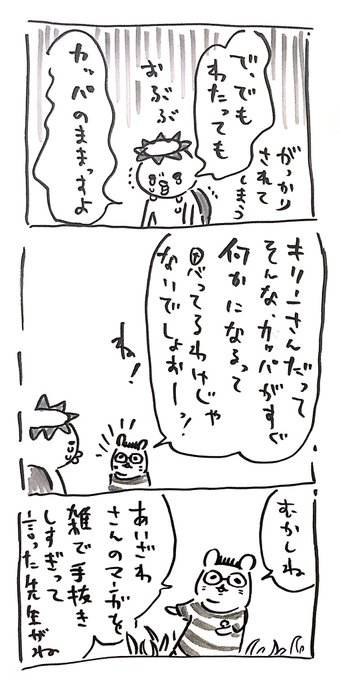 で、でも
わたっても
おぶぶ
カッパのままっすよ
がっかり
されて
しまう
キリーさんだって
そんな、カッパがすぐ
何かになるって
思ってるわけじゃ
ないでしょおーっ!
ね!
むかしね
あいざわ
さんのマンガを
雑で手抜き
しすぎって
言った先生がね